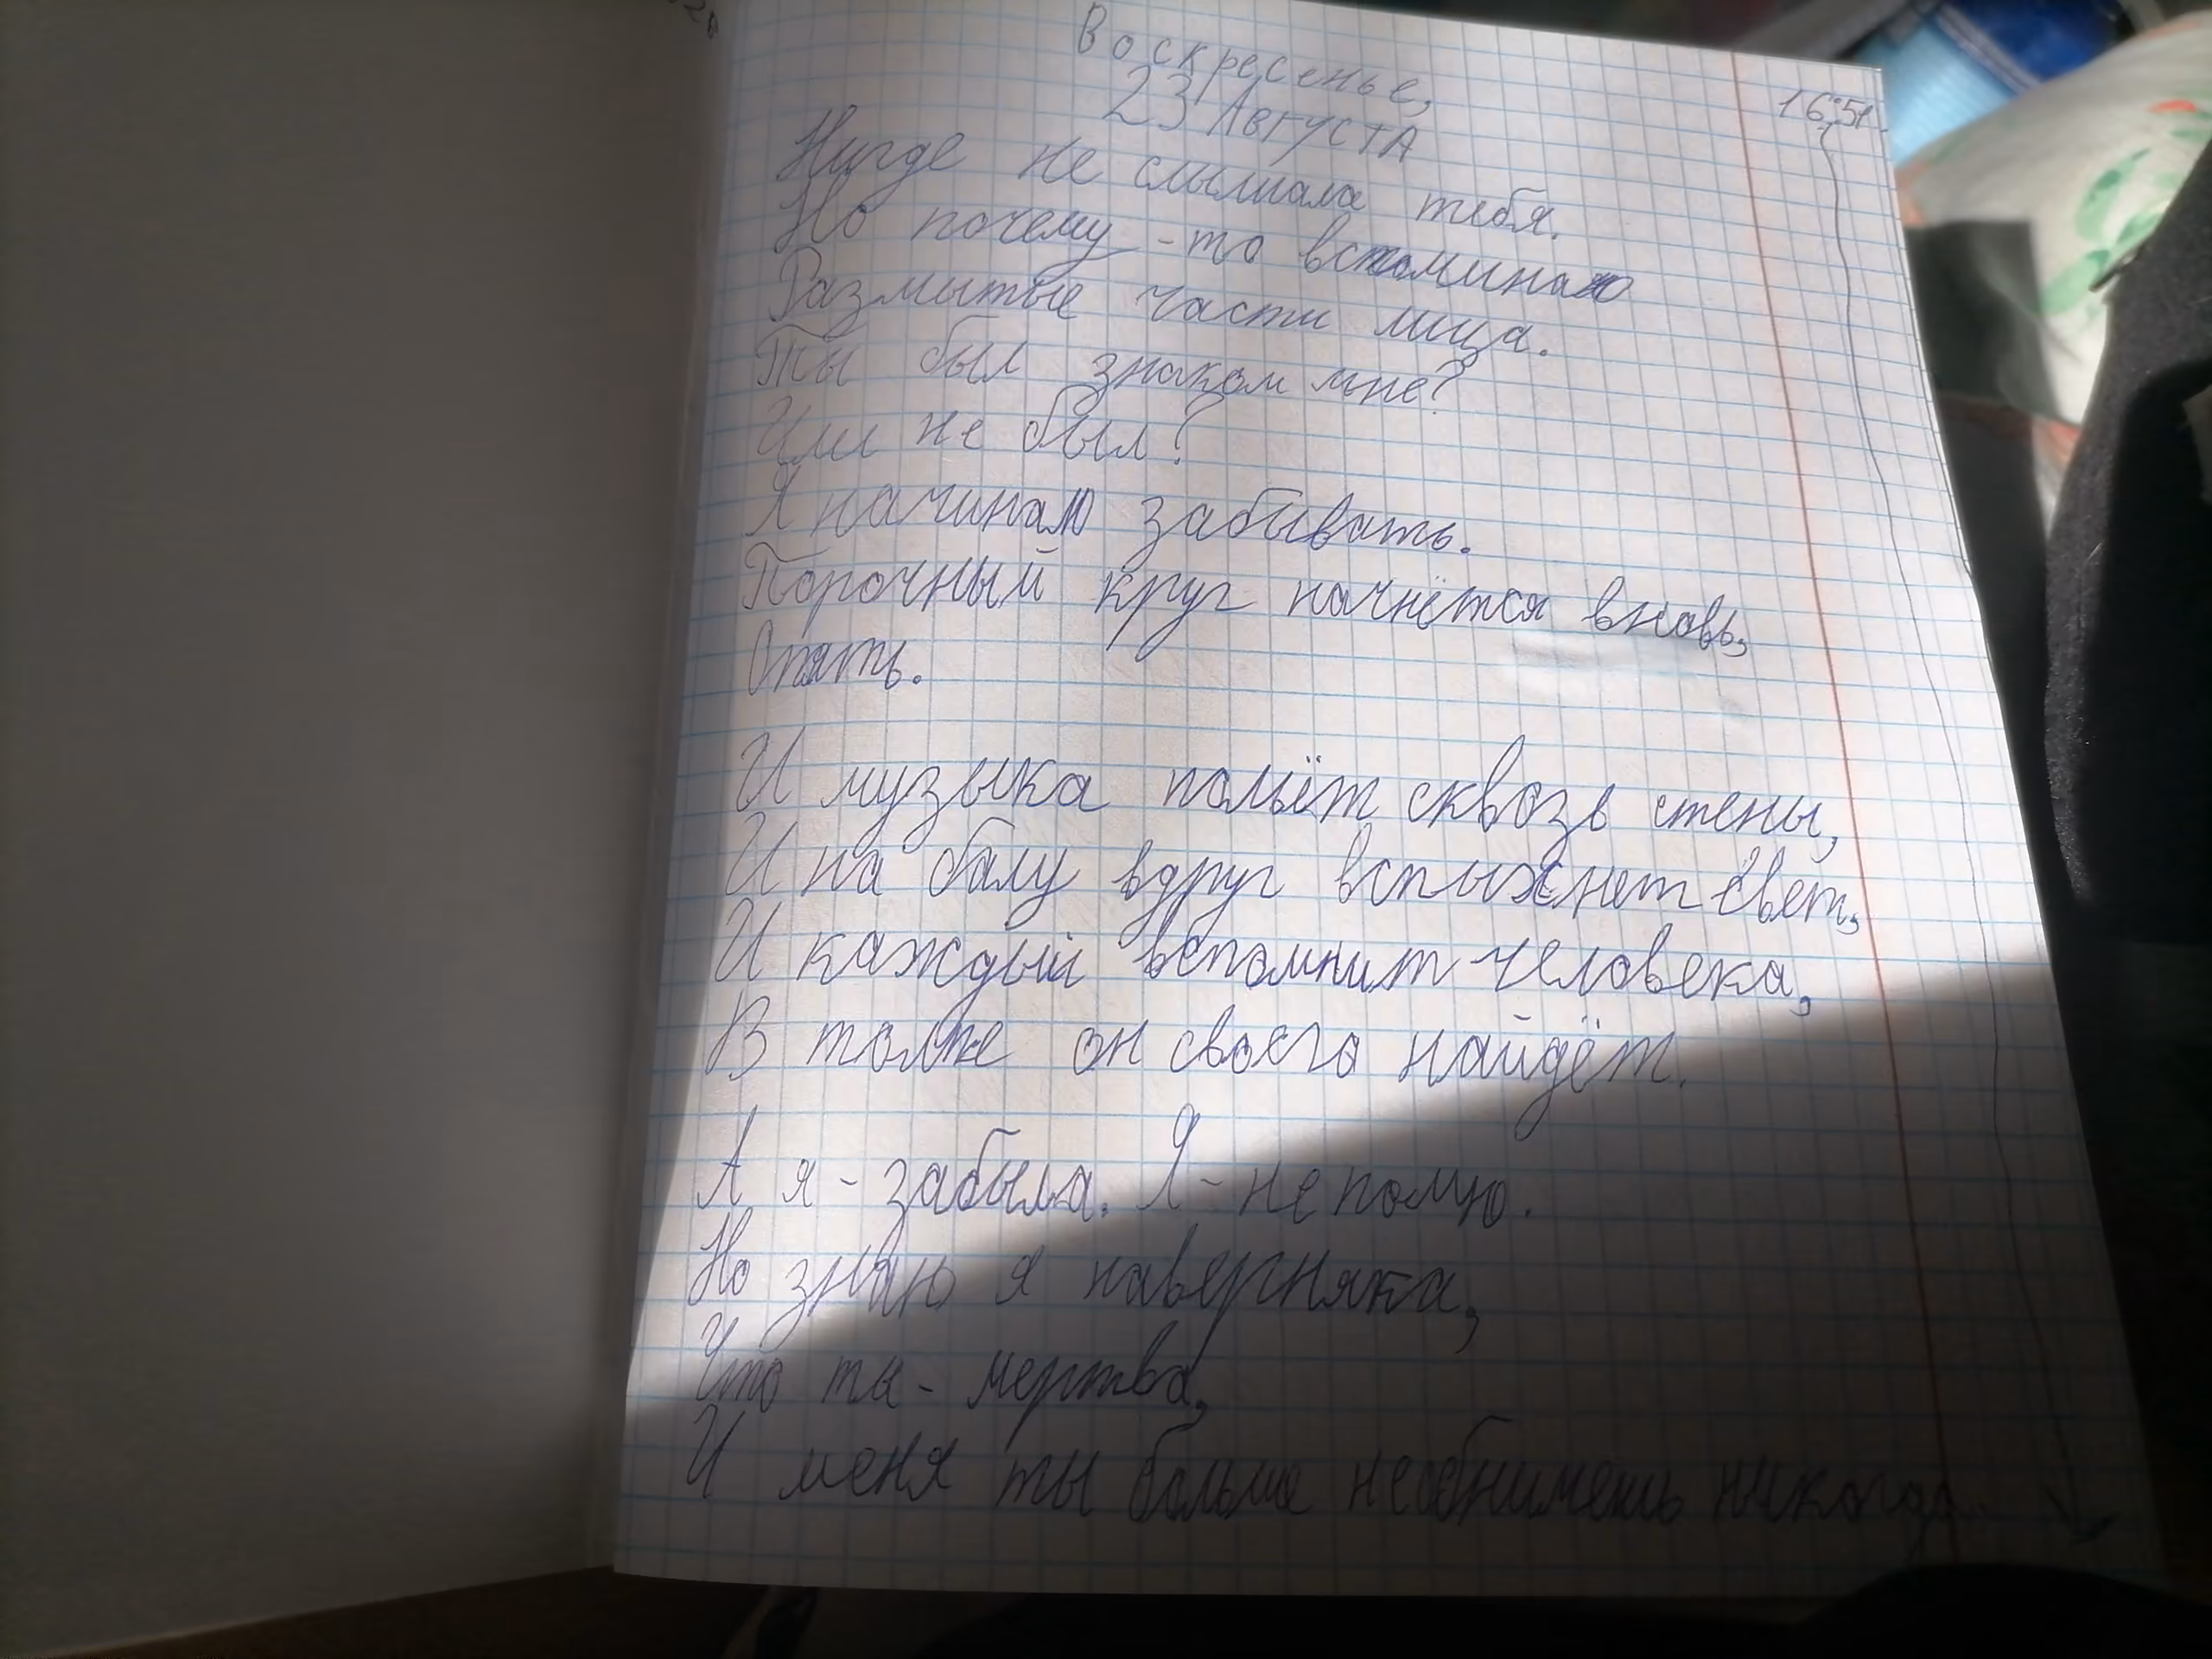 Воскресенье,
23 Августа
16:51
Нигде не слышала тебя.
Но почему-то вспоминаю
Размытые части лица.
Ты был знаком мне?
Или не был?
Я начинаю забывать.
Порочный круг начнётся вновь,
Опять.
И музыка польёт сквозь стены,
И на балу вдруг вспыхнет свет,
И каждый вспомнит человека,
В толпе он своего найдёт.
А я - забыла. Я - не помню.
Но знаю я наверняка,
Что ты - мертва,
И меня ты больше не обнимешь никогда